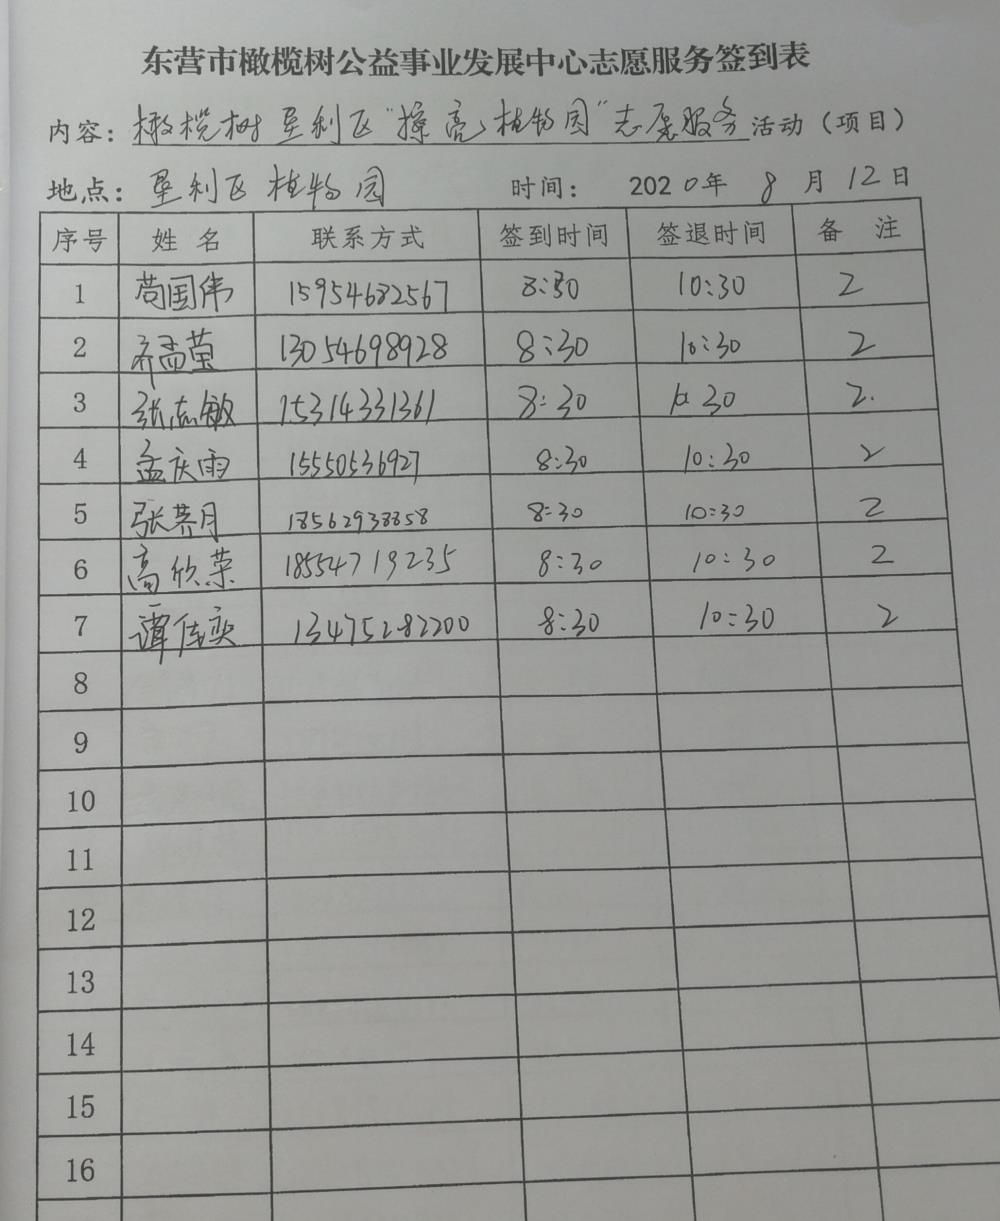 东营市橄榄树公益事业发展中心志愿服务签到表
内容：橄榄树垦利区“擦亮植物园”志愿服务活动（项目）
地点：垦利区植物园 时间：2020年 8月12日
序号 姓名 联系方式 签到时间 签退时间 备注
1 苟国伟 15954682567 8:30 10:30 2
2 齐孟莹 13054698928 8:30 10:30 2
3 张志敏 15314331361 8:30 10 30 2.
4 孟庆雨 15550536927 8:30 10:30 2
5 张荠月 18562938858 8:30 10:30 2
6 高欣荣 18554719235 8:30 10:30 2
7 谭佳奕 13475282200 8:30 10:30 2
8
9
10
11
12
13
14
15
16